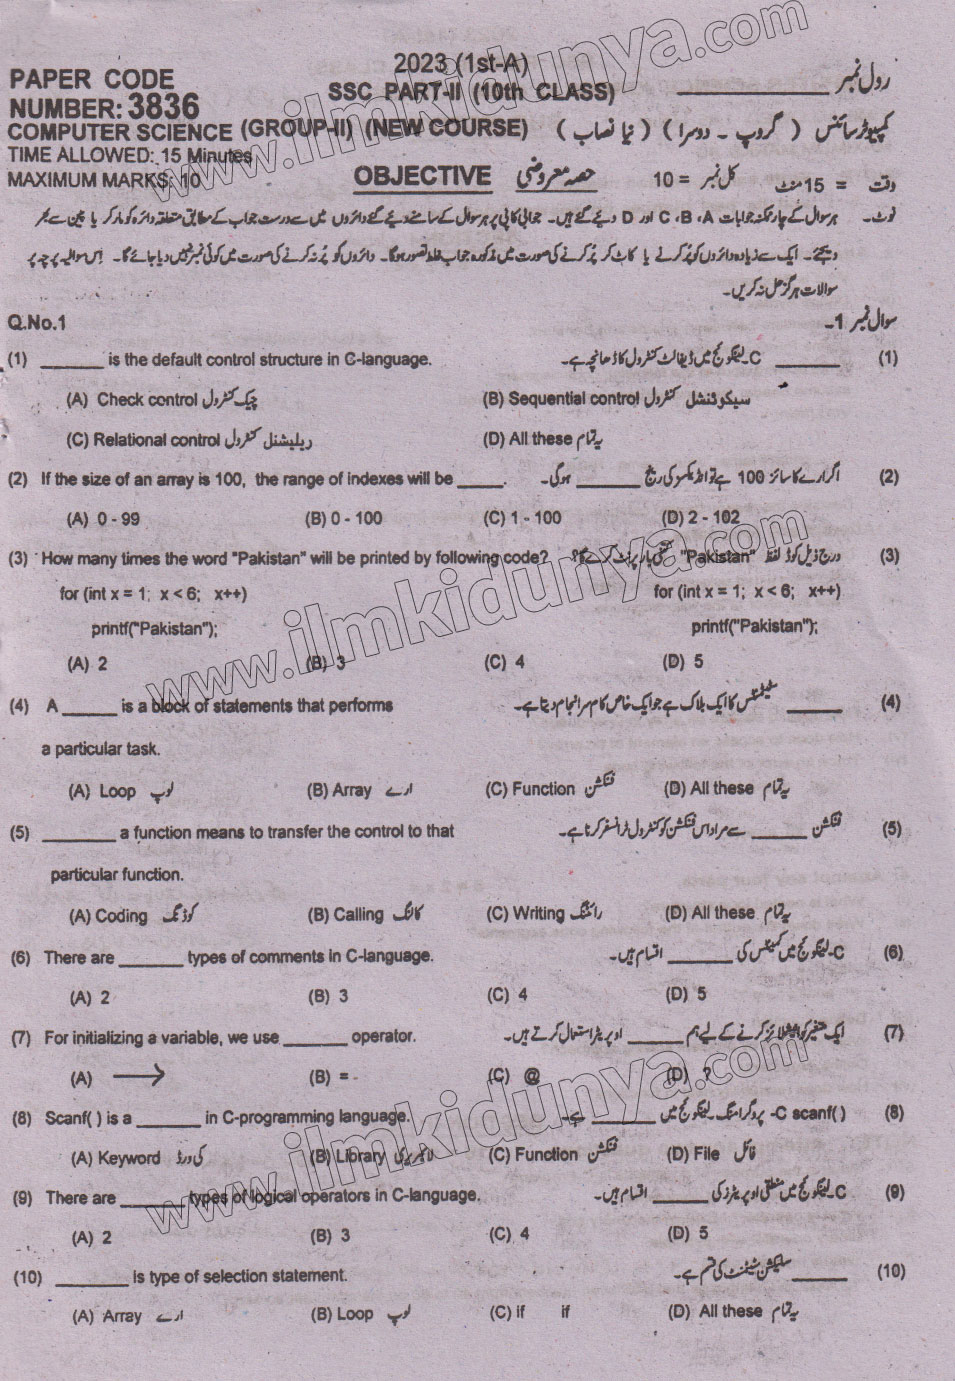 2023 (1st-A)
PAPER CODE
NUMBER: 3836
SSC PART-II (10th CLASS)
رول نمبر ____________
COMPUTER SCIENCE (GROUP-II) (NEW COURSE) کمپیوٹر سائنس ( گروپ ۔ دوسرا ) ( نیا نصاب )
TIME ALLOWED: 15 Minutes
وقت = 15 منٹ
MAXIMUM MARKS: 10
OBJECTIVE حصہ معروضی
کل نمبر = 10
نوٹ۔ ہر سوال کے چار ممکنہ جوابات A ،B ،C اور D دیئے گئے ہیں۔ جوابی کاپی پر ہر سوال کے سامنے دیئے گئے دائروں میں سے درست جواب کے مطابق متعلقہ دائرہ کو مارکر یا پین سے بھر
دیجئے۔ ایک سے زیادہ دائروں کو پُر کرنے یا کاٹ کر پُر کرنے کی صورت میں مذکورہ جواب غلط تصور ہوگا۔ دائروں کو پُر نہ کرنے کی صورت میں کوئی نمبر نہیں دیا جائے گا۔ اِس سوالیہ پرچہ پر
سوالات ہرگز حل نہ کریں۔
Q.No.1 سوال نمبر 1-
(1) _______ is the default control structure in C-language. C-لینگوئج میں ڈیفالٹ کنٹرول کا ڈھانچہ ہے۔ _______ (1)
(A) Check control چیک کنٹرول (B) Sequential control سیکوئنشل کنٹرول
(C) Relational control ریلیشنل کنٹرول (D) All these یہ تمام
(2) If the size of an array is 100, the range of indexes will be _____. اگر ارے کا سائز 100 ہے تو انڈیکسز کی رینج _______ ہوگی۔ (2)
(A) 0 - 99 (B) 0 - 100 (C) 1 - 100 (D) 2 - 102
(3) How many times the word "Pakistan" will be printed by following code? درج ذیل کوڈ لفظ "Pakistan" کتنی بار پرنٹ کرے گا؟ (3)
for (int x = 1; x < 6; x++) for (int x = 1; x < 6; x++)
printf("Pakistan"); printf("Pakistan");
(A) 2 (B) 3 (C) 4 (D) 5
(4) A ______ is a block of statements that performs ______ سٹیٹمنٹس کا ایک بلاک ہے جو ایک خاص کام سرانجام دیتا ہے۔ (4)
a particular task.
(A) Loop لوپ (B) Array ارے (C) Function فنکشن (D) All these یہ تمام
(5) ________ a function means to transfer the control to that فنکشن ______ سے مراد اس فنکشن کو کنٹرول ٹرانسفر کرنا ہے۔ (5)
particular function.
(A) Coding کوڈنگ (B) Calling کالنگ (C) Writing رائٹنگ (D) All these یہ تمام
(6) There are _______ types of comments in C-language. C-لینگوئج میں کمنٹس کی _______ اقسام ہیں۔ (6)
(A) 2 (B) 3 (C) 4 (D) 5
(7) For initializing a variable, we use _______ operator. ایک متغیر کو انیشلائز کرنے کے لیے ہم ______ اوپریٹر استعمال کرتے ہیں۔ (7)
(A) ⟶ (B) = (C) @ (D) ?
(8) Scanf( ) is a _______ in C-programming language. C scanf( )- پروگرامنگ لینگوئج میں _______ ہے۔ (8)
(A) Keyword کی ورڈ (B) Library لائبریری (C) Function فنکشن (D) File فائل
(9) There are _______ types of logical operators in C-language. C-لینگوئج میں منطقی اوپریٹرز کی ______ اقسام ہیں۔ (9)
(A) 2 (B) 3 (C) 4 (D) 5
(10) ________ is type of selection statement. ______ سلیکشن سٹیٹمنٹ کی قسم ہے۔ (10)
(A) Array ارے (B) Loop لوپ (C) if if (D) All these یہ تمام
www.ilmkidunya.com
www.ilmkidunya.com
www.ilmkidunya.com